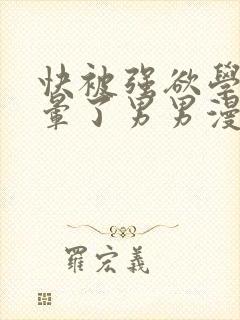 快被强欲學
暈了男男漫
羅宏義